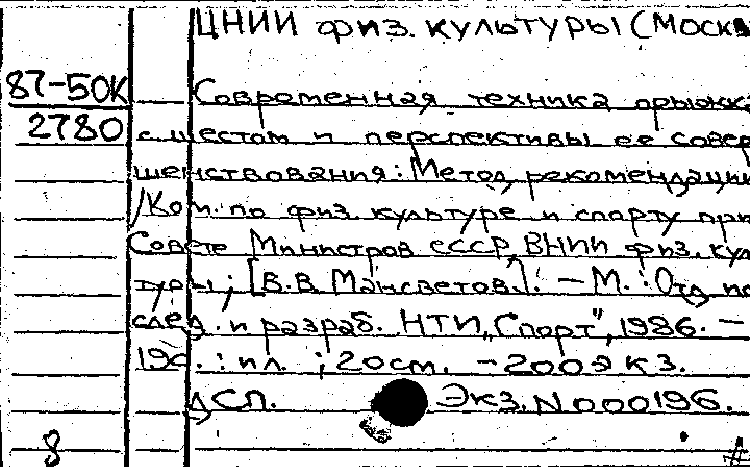 ЦНИИ физ. культуры (Москв
87-50К
Современная техника прыжка
2780
с шестом и перспективы ее совер
шенствования: Метод. рекомендации
/Ком. по физ. культуре и спорту при
Совете Министров СССР, ВНИИ физ. куль
туры; [В.В. Мансветов]. - М.: Отд. по
след. и разраб. НТИ "Спорт", 1986. -
19с.: ил.; 20см. - 200экз.
ДСП. Экз. N000196.
8